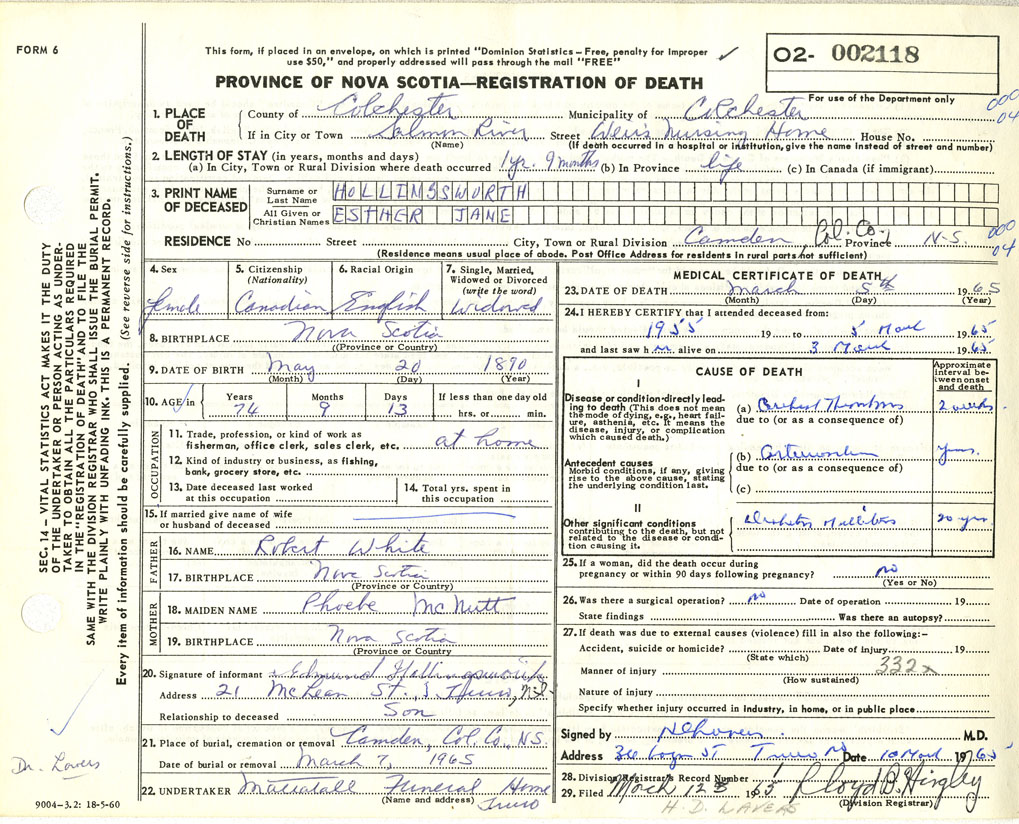 FORM 6
This form, if placed in an envelope, on which is printed "Dominion Statistics – Free, penalty for improper
use $50," and properly addressed will pass through the mail "FREE"
PROVINCE OF NOVA SCOTIA—REGISTRATION OF DEATH
O2- 002118
For use of the Department only
000
04
1. PLACE OF DEATH
County of Colchester Municipality of Colchester
If in City or Town Salmon River Street Weir's Nursing Home House No.
(Name) (If death occurred in a hospital or institution, give the name instead of street and number)
2. LENGTH OF STAY (in years, months and days)
(a) In City, Town or Rural Division where death occurred 1 yr. 9 months (b) In Province life (c) In Canada (if immigrant)
3. PRINT NAME OF DECEASED
Surname or Last Name HOLLINGSWORTH
All Given or Christian Names ESTHER JANE
RESIDENCE No Street City, Town or Rural Division Camden, Col. Co. Province N.S.
000
04
(Residence means usual place of abode. Post Office Address for residents in rural parts not sufficient)
4. Sex
female
5. Citizenship
(Nationality)
Canadian
6. Racial Origin
English
7. Single, Married, Widowed or Divorced
(write the word)
Widowed
8. BIRTHPLACE Nova Scotia
((Province or Country)
9. DATE OF BIRTH May 20 1890
(Month) (Day) (Year)
10. AGE in
Years Months Days If less than one day old
74 9 13 hrs. or min.
OCCUPATION
11. Trade, profession, or kind of work as
fisherman, office clerk, sales clerk, etc. at home
12. Kind of industry or business, as fishing,
bank, grocery store, etc.
13. Date deceased last worked
at this occupation
14. Total yrs. spent in
this occupation
15. If married give name of wife
or husband of deceased
FATHER
16. NAME Robert White
17. BIRTHPLACE Nova Scotia
(Province or Country)
MOTHER
18. MAIDEN NAME Phoebe McNutt
19. BIRTHPLACE Nova Scotia
(Province or Country)
20. Signature of informant Edmund Hollingsworth
Address 21 McLean St., S. Truro, N.S.
Relationship to deceased Son
21. Place of burial, cremation or removal Camden, Col. Co., N.S.
Date of burial or removal March 7, 1965
22. UNDERTAKER Mattatall Funeral Home
(Name and address) Truro
MEDICAL CERTIFICATE OF DEATH
23. DATE OF DEATH March 5th 1965
(Month) (Day) (Year)
24. I HEREBY CERTIFY that I attended deceased from:
1955 19 to 5 March 1965
and last saw h er alive on 3 March 1965
CAUSE OF DEATH
Approximate interval between onset and death
I
Disease or condition directly leading to death (This does not mean the mode of dying, e.g., heart failure, asthenia, etc. It means the disease, injury, or complication which caused death.)
(a) Cerebral Thrombosis 2 weeks
due to (or as a consequence of)
Antecedent causes
Morbid conditions, if any, giving rise to the above cause, stating the underlying condition last.
(b) yrs.
due to (or as a consequence of)
(c)
II
Other significant conditions
contributing to the death, but not related to the disease or condition causing it.
Diabetes Mellitus 20 yrs
25. If a woman, did the death occur during
pregnancy or within 90 days following pregnancy? no
(Yes or No)
26. Was there a surgical operation? no Date of operation 19
State findings Was there an autopsy?
27. If death was due to external causes (violence) fill in also the following:–
Accident, suicide or homicide? Date of injury 19
(State which)
332x
Manner of injury
(How sustained)
Nature of injury
Specify whether injury occurred in industry, in home, or in public place
Signed by M.D.
Address St Truro NS Date 10 March 1965
28. Division Registrar's Record Number 1
29. Filed March 12 1965 Lloyd B. Hingley
(Division Registrar)
H. D. LAVERS
SEC. 14 – VITAL STATISTICS ACT MAKES IT THE DUTY
OF THE UNDERTAKER OR PERSON ACTING AS UNDER-
TAKER TO OBTAIN ALL THE PARTICULARS REQUIRED
IN THE "REGISTRATION OF DEATH" AND TO FILE THE
SAME WITH THE DIVISION REGISTRAR WHO SHALL ISSUE THE BURIAL PERMIT.
WRITE PLAINLY WITH UNFADING INK. THIS IS A PERMANENT RECORD.
Every item of information should be carefully supplied. (See reverse side for instructions.)
Dr. Lavers
9004-3.2: 18-5-60